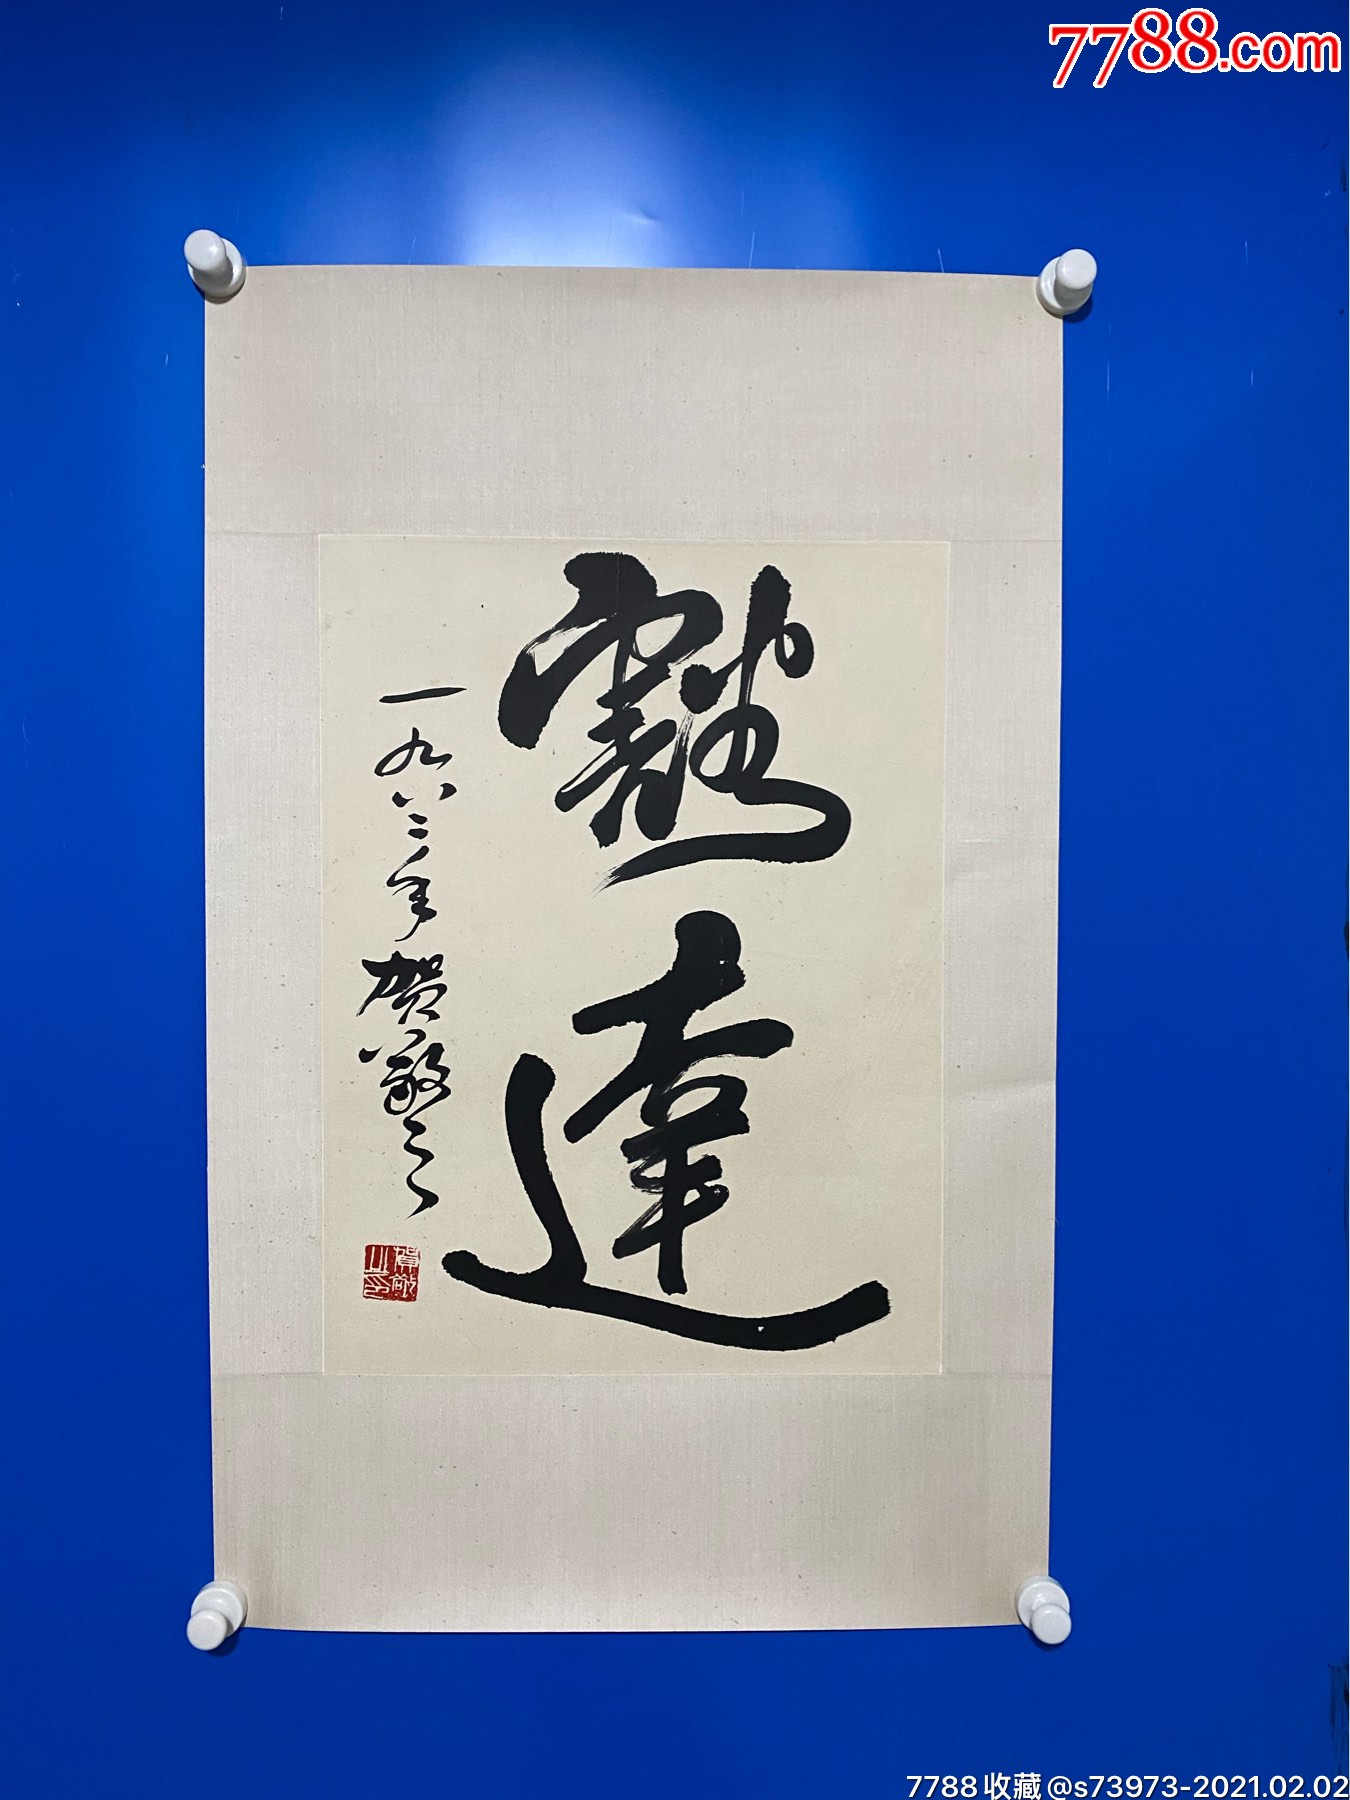 7788.com
豁達
一九八二年贺敬之
賀敬之印
7788收藏@s73973-2021.02.02